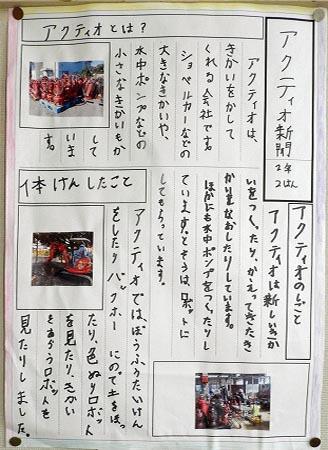 アクティオ新聞
2年
2はん
アクティオとは?
アクティオは、
きかいをかして
くれる会社です。
ショベルカーなどの
大きなきかいや、
水中ポンプなどの
小さなきかいもか
して
います。
アクティオのしごと
アクティオは新しいきか
いをつくったり、かえってきたき
かいをなおしたりしています。
ほかにも水中ポンプをつくったりし
ています。とそうは、ロボットに
してもらっています。
体けんしたこと
アクティオでは、ぼうふうたいけん
をしたりバックホーにのって土をほっ
たり、色ぬりロボット
を見たり、きかい
をあらうロボットを
見たりしました。